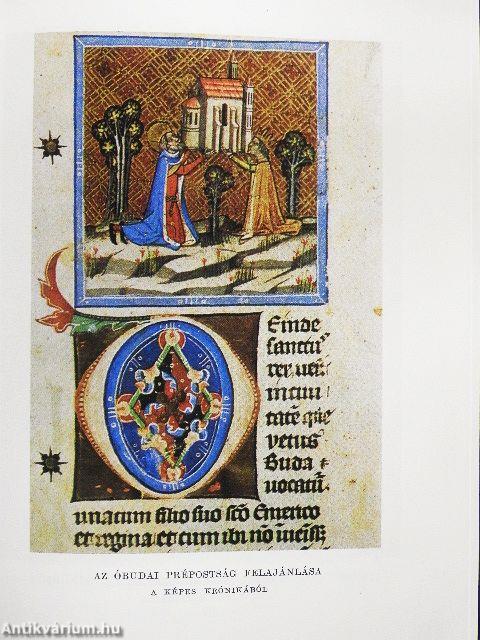 Einde
sanctꝰ
rex ueñ
in ciui
tatē que
vetus
Buda
uocatur̄
una cum filio suo sc̄o Emerico
et regina et cum ibi nō
AZ ÓBUDAI PRÉPOSTSÁG FELAJÁNLÁSA
A KÉPES KRÓNIKÁBÓL
Antikvárium.hu